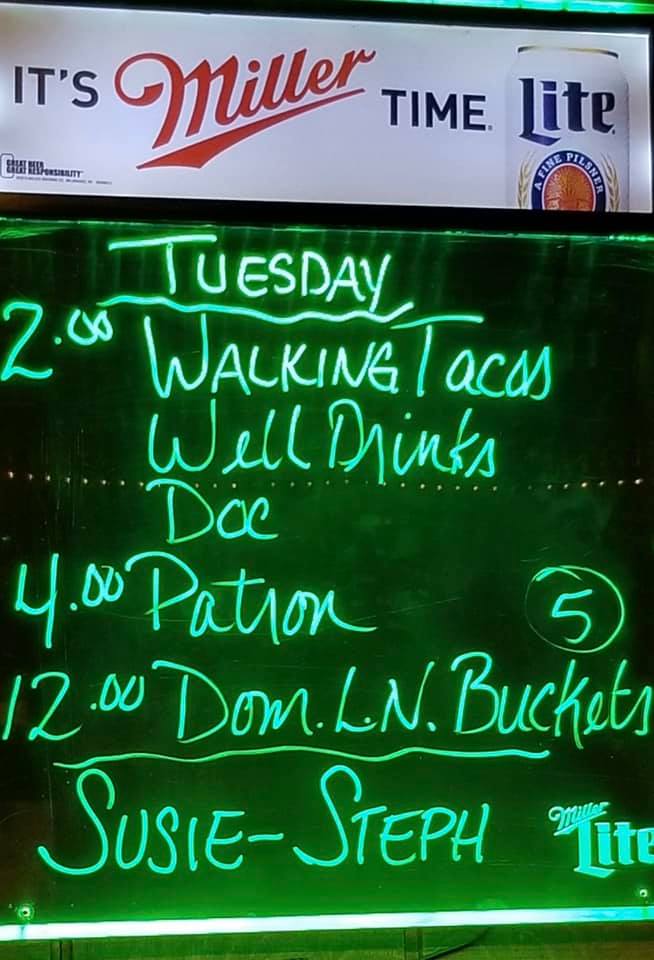 IT'S Miller TIME. Lite
A FINE PILSNER
GREAT BEER
GREAT RESPONSIBILITY
TUESDAY
2.00 WALKING Tacos
Well Drinks
Doc
4.00 Patron 5
12.00 Dom. L.N. Buckets
SUSIE - STEPH
Miller
Lite